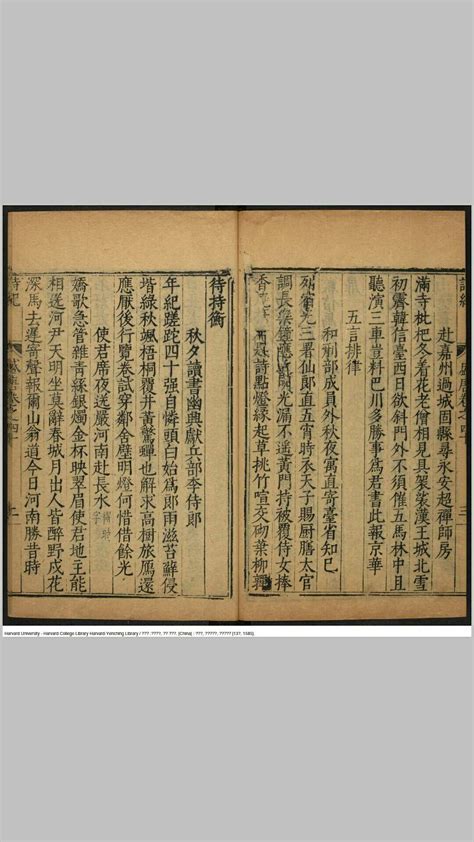 赴嘉州過城固縣尋永安超禪師房
滿寺枇杷冬着花老僧相見具袈裟漢王城北雪
初霽韓信臺西日欲斜門外不須催五馬林中且
聽演三車豈料巴川多勝事爲君書此報京華
五言排律
和祠部成員外秋夜寓直寄臺省知己
列宿光三署仙郎直五宵時衣天子賜厨膳太官
調長樂鐘應近明光漏不遥黃門持被覆侍女捧
香 詩點燈緣起草挑竹喧交砌葉柳嚲
待持衡
秋夕讀書幽興獻兵部李侍郎
年紀蹉跎四十强自憐頭白始爲郎雨滋苔蘚侵
堦綠秋颯梧桐覆井黃驚蟬也解求高樹旅鴈還
應厭後行覽卷試穿鄰舍壁明燈何惜借餘光
使君席夜送嚴河南赴長水
嬌歌急管雜青絲銀燭金杯映翠眉使君地主能
相送河尹天明坐莫辭春城月出人皆醉野戍花
深馬去遲寄聲報爾山翁道今日河南勝昔時
詩紀 盛唐卷之四
Harvard University - Harvard College Library Harvard-Yenching Library / ???. ????, ?? ???. [China] : ???, ?????. ????? [137, 1585].